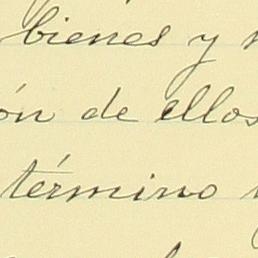 bienes y
ón de ellos
término